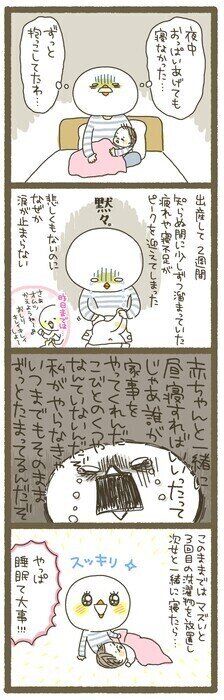 夜中
おっぱいあげても
寝なかった…
ずっと
抱っこしてたわ…
出産して2週間
知らぬ間に少しずつ溜まっていた
疲れや寝不足が
ピークを迎えてしまった
黙々。
悲しくもないのに
なぜか
涙が止まらない
昨日までは
赤ちゃんと一緒に
昼寝すればいいたって
じゃあ誰が
家事を
やってくれんだ
こびとのくつや
なんていないんだ
私がやらなきゃ
いつまでもそのまま
ずっとたまってるんだぞ
このままではマズいと
3回目の洗濯物を放置し
次せと一緒に寝たら…
スッキリ
やっぱ
睡眠て大事!!!